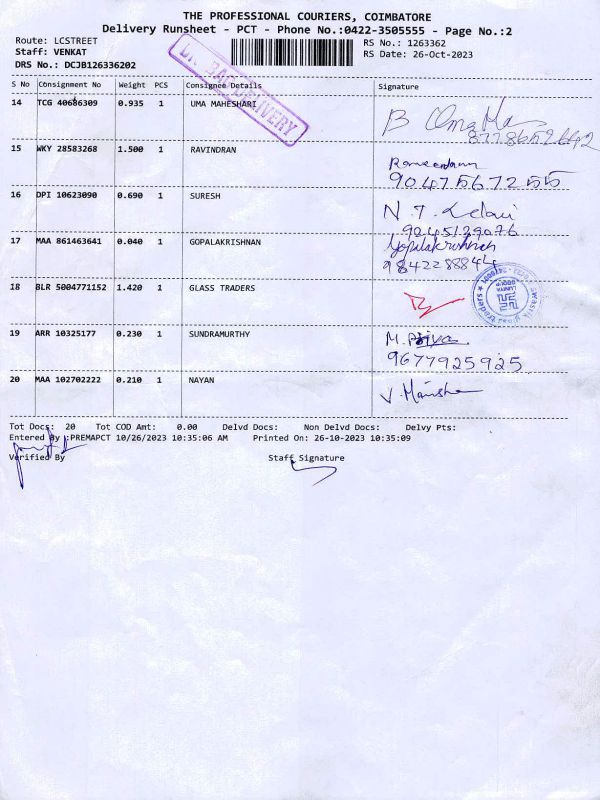 THE PROFESSIONAL COURIERS, COIMBATORE
Delivery Runsheet - PCT - Phone No.:0422-3505555 - Page No.:2
Route: LCSTREET
RS No.: 1263362
Staff: VENKAT
RS Date: 26-Oct-2023
DRS No.: DCJB126336202
DELIVERY
S No Consignment No Weight PCS Consignee Details Signature
14 TCG 40686309 0.935 1 UMA MAHESHARI B Uma Ma
8778652642
15 WKY 28583268 1.500 1 RAVINDRAN Raveendran
9047567255
16 DPI 10623090 0.690 1 SURESH N.T.
9245129076
17 MAA 861463641 0.040 1 GOPALAKRISHNAN Gopalakrishnan
9842288844
18 BLR 5004771152 1.420 1 GLASS TRADERS
19 ARR 10325177 0.230 1 SUNDRAMURTHY M. Priya
9677925925
20 MAA 102702222 0.210 1 NAYAN V. Manisha
Tot Docs: 20 Tot COD Amt: 0.00 Delvd Docs: Non Delvd Docs: Delvy Pts:
Entered By :PREMAPCT 10/26/2023 10:35:06 AM Printed On: 26-10-2023 10:35:09
Verified By Staff Signature